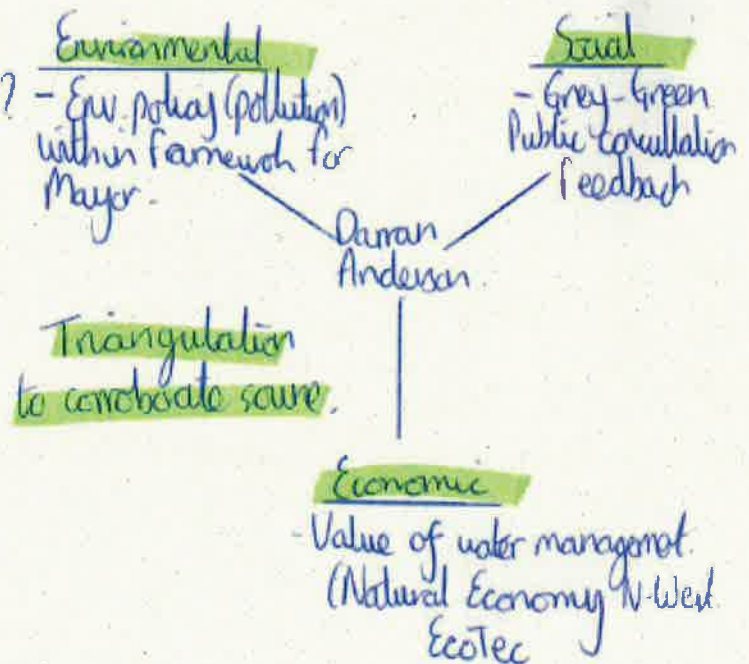 Environmental
? - Env. policy (pollution)
within framework for
Mayor.
Social
- Grey-Green
Public consultation
feedback
Darran
Anderson.
Triangulation
to corroborate source.
Economic
- Value of water managemet.
(Natural Economy N-West
EcoTec